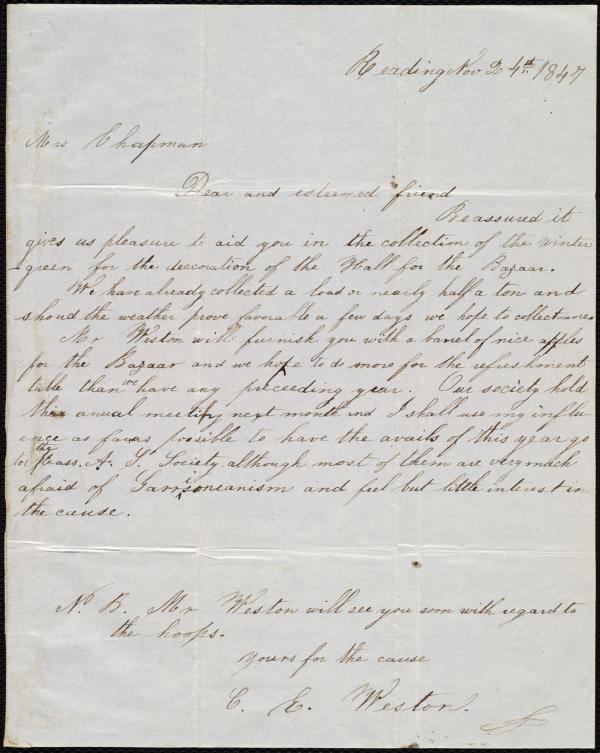 Reading Nov 24th 1847
Mrs Chapman
Dear and esteemed friend
Reassured it
gives us pleasure to aid you in the collection of the winter
green for the deccoration of the Hall for the Bazaar.
We have already collected a load or nearly half a ton and
shoud the weather prove favorable a few days we hope to collect more
Mr Weston will furnish you with a barrel of nice apples
for the Bazaar and we hope to do more for the refreshment
table than we have any preceeding year. Our society hold
their anual meeting next month and I shall use my influ
ence as far as posible to have the avails of this year go
to the Mass. A. S. Society although most of them are very much
afraid of Garrisonianism and feel but little interest in
the cause.
N. B. Mr Weston will see you soon with regard to
the hoops.
yours for the cause
C. E. Weston.